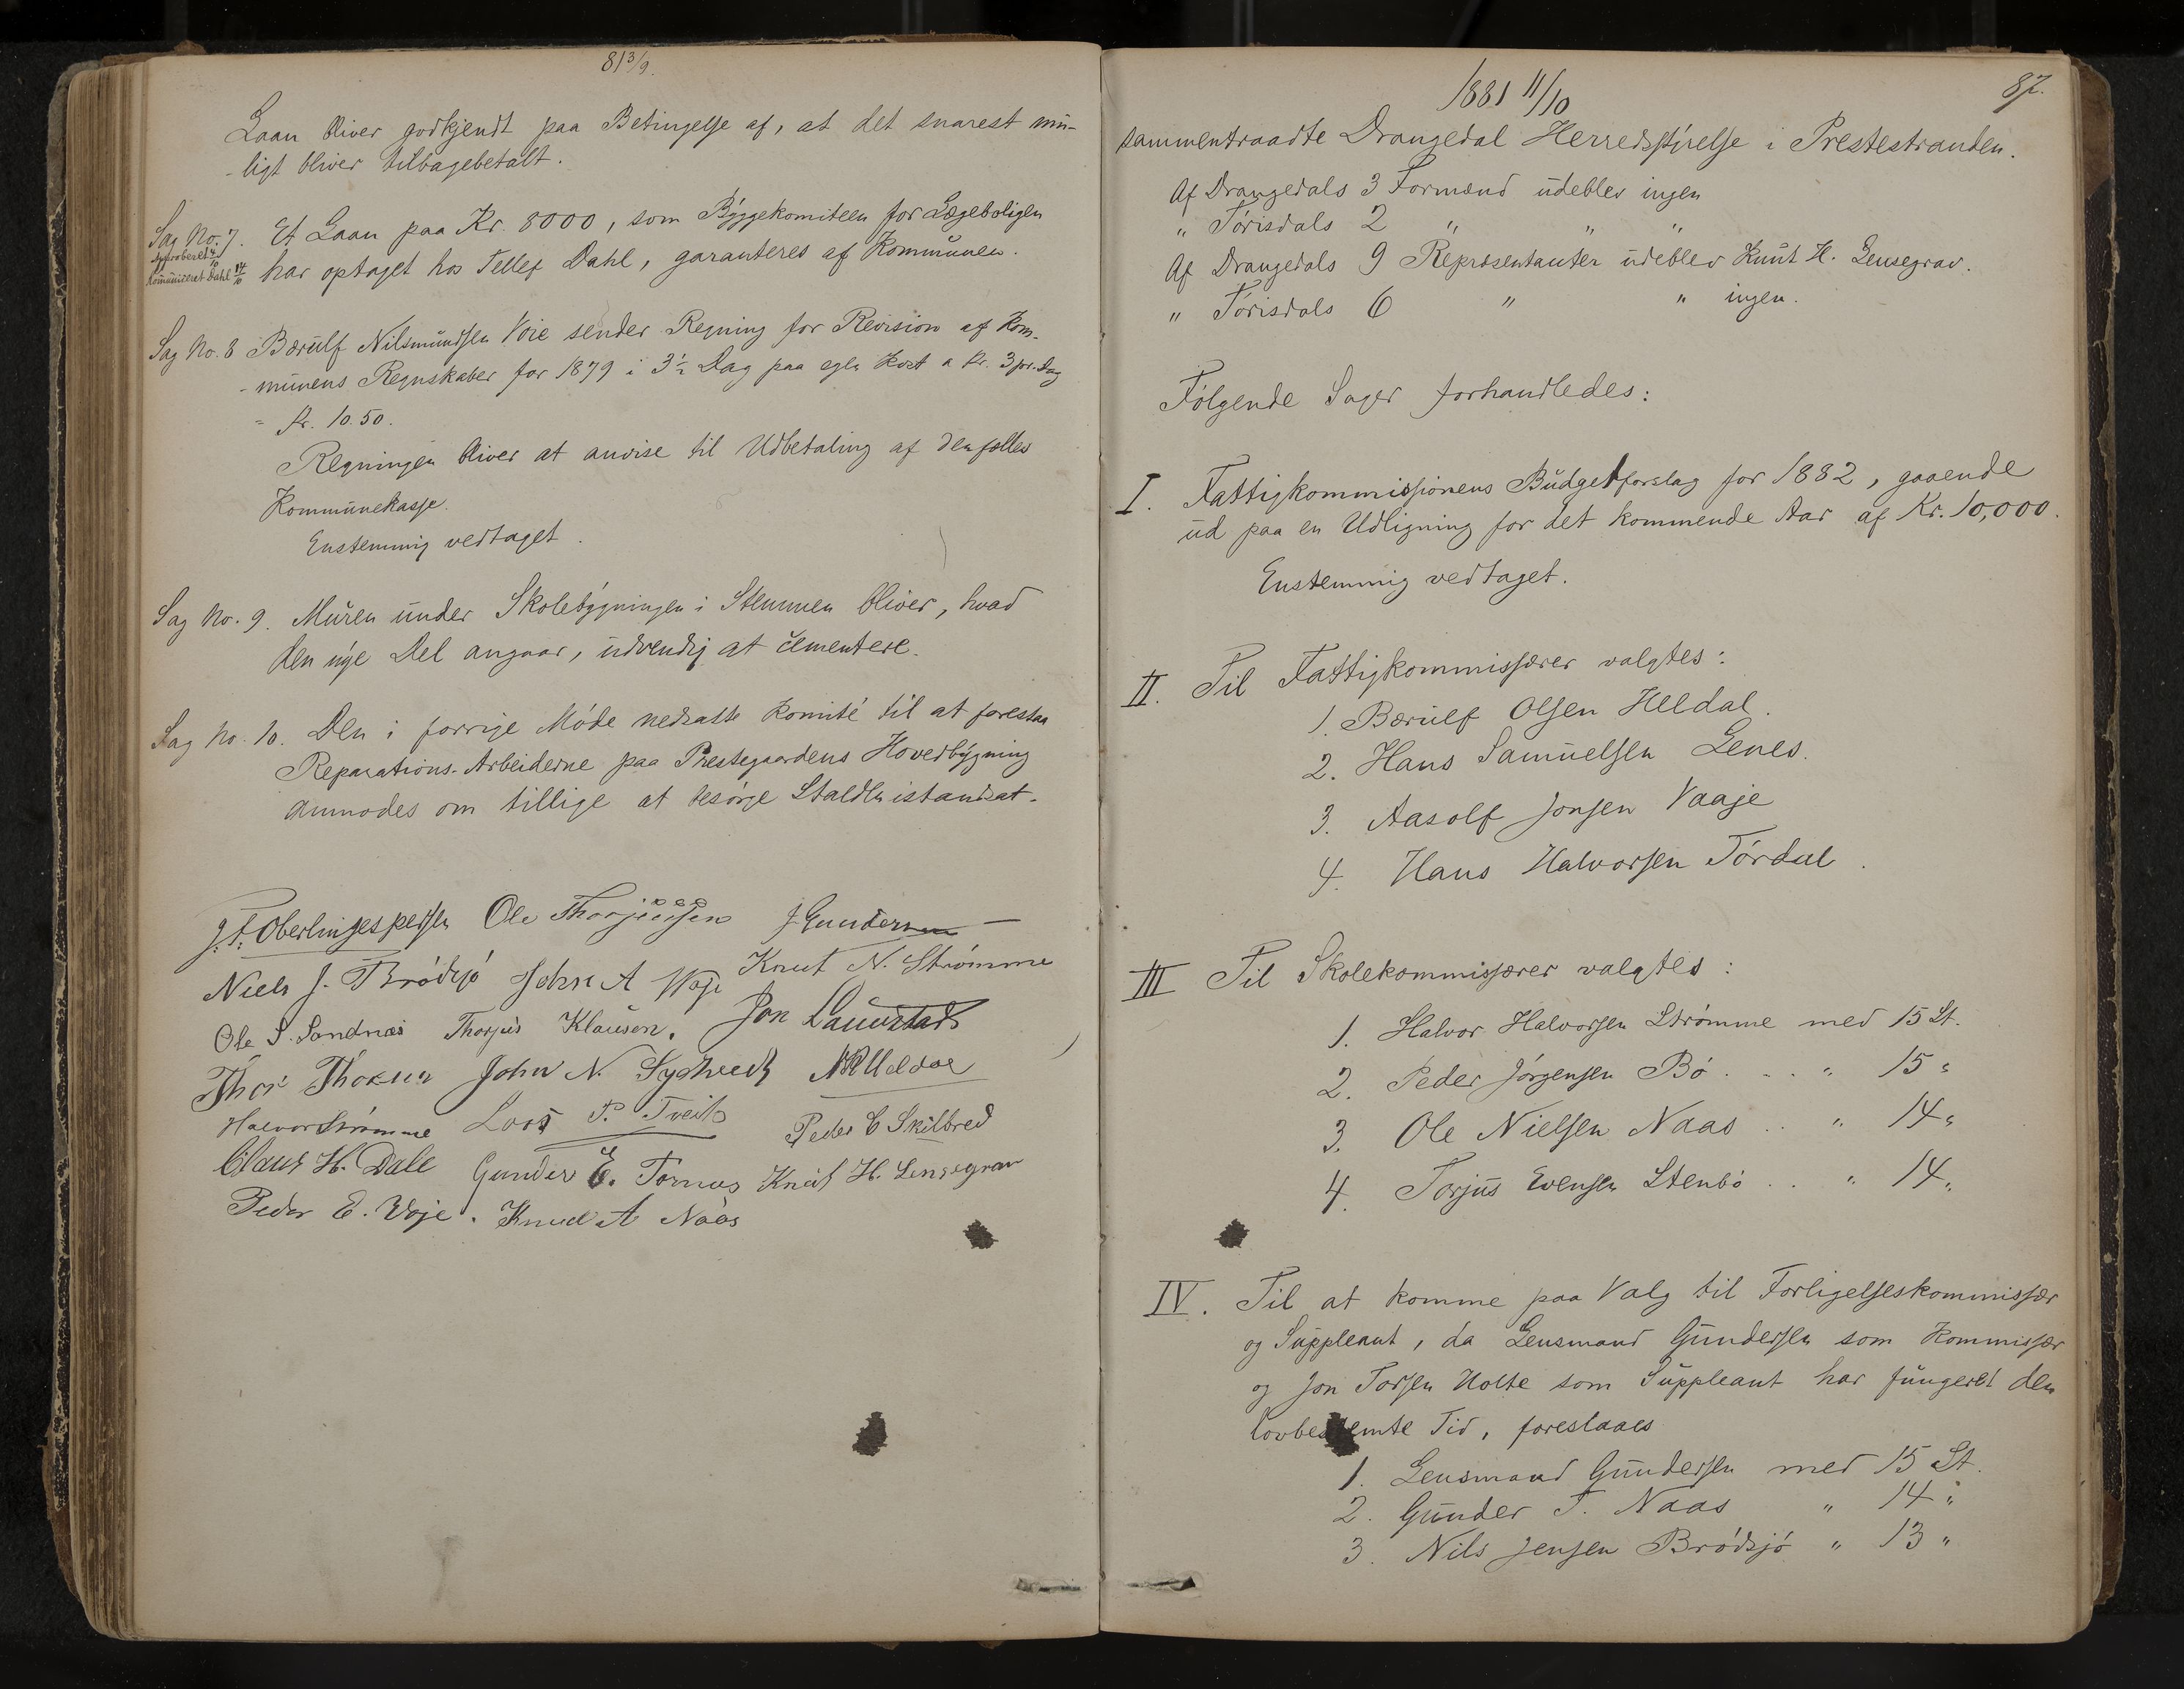 81 3/9.
Laan bliver godkjendt paa Betingelse af, at det snarest mu-
-ligt bliver tilbagebetalt.
Sag No. 7. Et Laan paa Kr. 8000, som Byggekomiteen for Lægeboligen
har optaget hos Tellef Dahl, garanteres af Kommunen.
Approberet 4/10
Kommuniceret Dahl 14/10
Sag No. 8 Bærulf Nilsmundsen Voie sender Regning for Revision af Kom-
-munens Regnskaber for 1879 i 3 1/2 Dag paa egen Kost a Kr. 3 pr. Dag
= Kr. 10.50.
Regningen bliver at anvise til Udbetaling af den fælles
Kommunekasse.
Enstemmig vedtaget.
Sag No. 9. Muren under Skolebygningen i Stemmen bliver, hvad
den nye Del angaar, udvendig at cementere.
Sag No. 10. Den i forrige Møde nedsatte Komité til at forestaa
Reparations-Arbeiderne paa Prestegaardens Hovedbygning
anmodes om tillige at besørge Stalden istandsat.
Ole J. Gundersen
Niels J. Brødsjø John A Woje Knut N. Strømme
Ole S. Sandnæs Thorjus Klausen. Jon Lauvstad
Thor Thorsen John N.
Halvor Strømme Lars P. Tveit Peder C Skilbred
Claus H. Dale Gunder E. Tornes Knut H. Lensegrav
Peder E. Woje. Knud A Naas
87.
1881 11/10
sammentraadte Drangedal Herredsstyrelse i Prestestranden.
Af Drangedals 3 Formænd udeblev ingen
" Tørisdals 2 " " "
Af Drangedals 9 Repræsentanter udeblev Knut H. Lensegrav.
" Tørisdals 6 " " ingen.
Følgende Sager forhandledes:
I. Fattigkommissionens Budgetforslag for 1882, gaaende
ud paa en Udligning for det kommende Aar af Kr. 10,000.
Enstemmig vedtaget.
II. Til Fattigkommissærer valgtes:
1. Bærulf Olsen Heldal.
2. Hans Samuelsen Lenes.
3. Aasolf Jonsen Vaaje
4. Hans Halvorsen Tørdal.
III Til Skolekommissærer valgtes:
1. Halvor Halvorsen Strømme med 15 St.
2. Peder Jørgensen Bø . . . " 15 "
3. Ole Nielsen Naas . . " 14 "
4. Torjus Evensen Stenbø . . " 14 "
IV. Til at komme paa Valg til Forligelseskommissær
og Suppleant, da Lensmand Gundersen som Kommissær
og Jon Torsen Holte som Suppleant har fungeret den
lovbestemte Tid, foreslaaes
1. Lensmand Gundersen med 15 St.
2. Gunder T. Naas " 14 "
3. Nils Jensen Brødsjø " 13 "